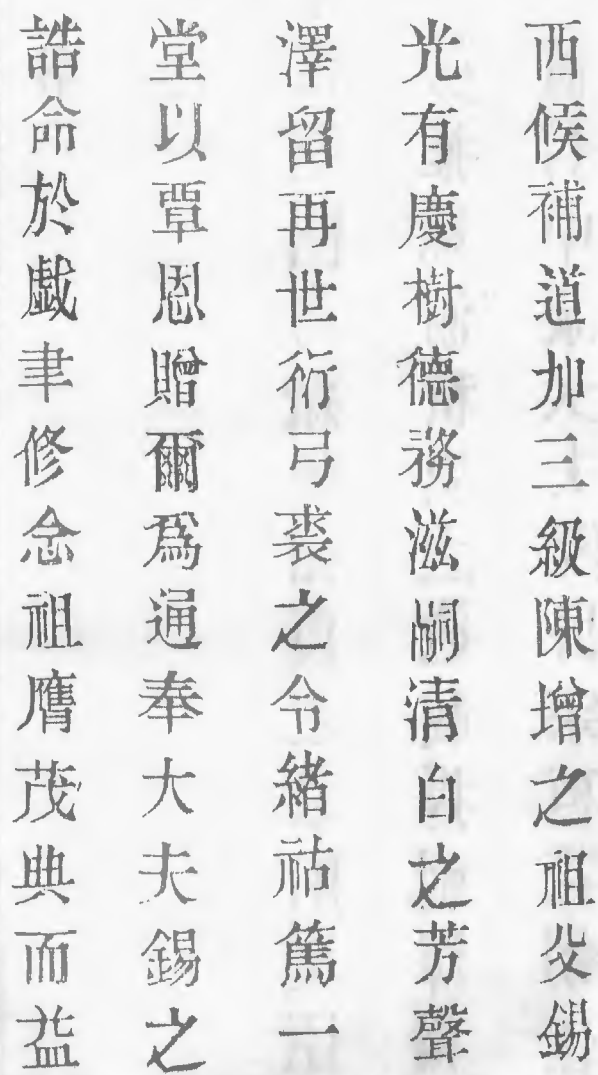 西候補道加三級陳增之祖父錫
光有慶樹德務滋嗣清白之芳聲
澤留再世衍弓裘之令緒祜篤一
堂以覃恩贈爾為通奉大夫錫之
誥命於戲聿修念祖膺茂典而益